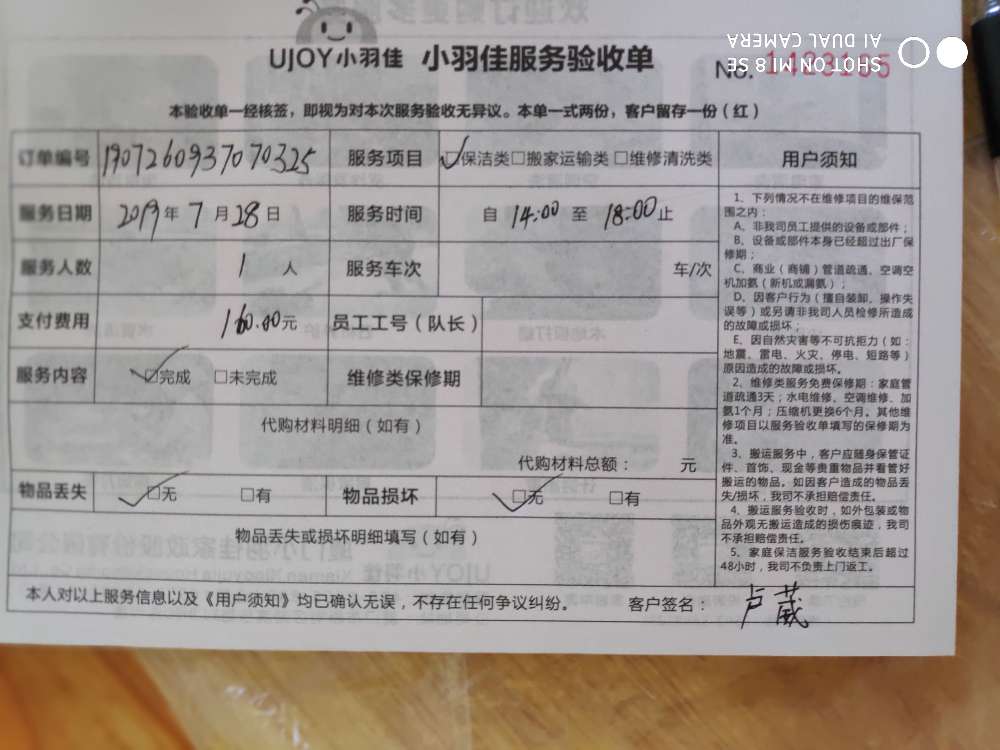 UJOY小羽佳 小羽佳服务验收单
No. 1423165
本验收单一经核签，即视为对本次服务验收无异议。本单一式两份，客户留存一份（红）
订单编号 190726093707 0325 服务项目 ☑保洁类□搬家运输类□维修清洗类
服务日期 2019年7月28日 服务时间 自 14:00 至 18:00止
服务人数 1 人 服务车次 车/次
支付费用 160.00元 员工工号（队长）
服务内容 ☑完成 □未完成 维修类保修期
代购材料明细（如有）
代购材料总额： 元
物品丢失 ☑无 □有 物品损坏 ☑无 □有
物品丢失或损坏明细填写（如有）
用户须知
1、下列情况不在维修项目的维保范
围之内：
A、非我司员工提供的设备或部件；
B、设备或部件本身已经超过出厂保
修期；
C、商业（商铺）管道疏通、空调空
机加氨（新机或漏氨）；
D、因客户行为（擅自装卸、操作失
误等）或另请非我司人员检修所造成
的故障或损坏；
E、因自然灾害等不可抗拒力（如：
地震、雷电、火灾、停电、短路等）
原因造成的故障或损坏。
2、维修类服务免费保修期：家庭管
道疏通3天；水电维修、空调维修、加
氨1个月；压缩机更换6个月。其他维
修项目以服务验收单填写的保修期为
准。
3、搬运服务中，客户应随身保管证
件、首饰、现金等贵重物品并看管好
搬运的物品。如因客户造成的物品丢
失/损坏，我司不承担赔偿责任。
4、搬运服务验收时，如外包装或物
品外观无搬运造成的损伤痕迹，我司
不承担赔偿责任。
5、家庭保洁服务验收结束后超过
48小时，我司不负责上门返工。
本人对以上服务信息以及《用户须知》均已确认无误，不存在任何争议纠纷。 客户签名： 卢葳
SHOT ON MI 8 SE
AI DUAL CAMERA